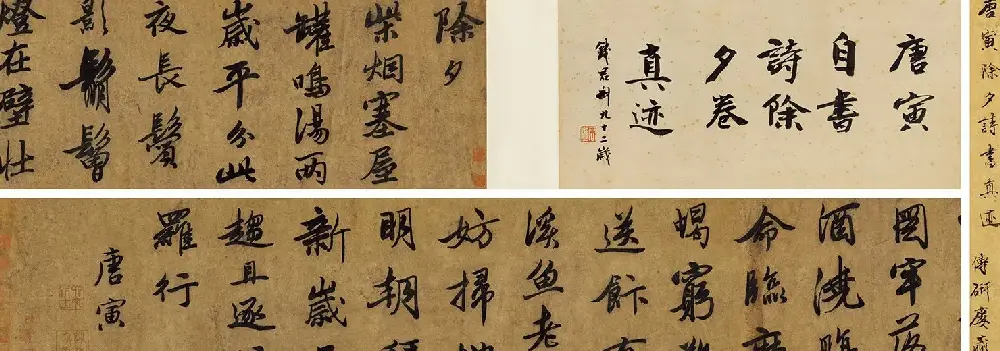 唐寅除夕詩書真迹
唐寅
自書
詩除
夕卷
真迹
錢君匋九十二歲
除夕
柴烟塞屋
罐鳴湯兩
歲平分此
夜長鬢
影鬅鬙
燈在壁壯
圖牢落
酒澆
命臨
蝎窮
送飰
溪魚老
妨掃
明朝
新歲
趨且逐
羅行
唐寅